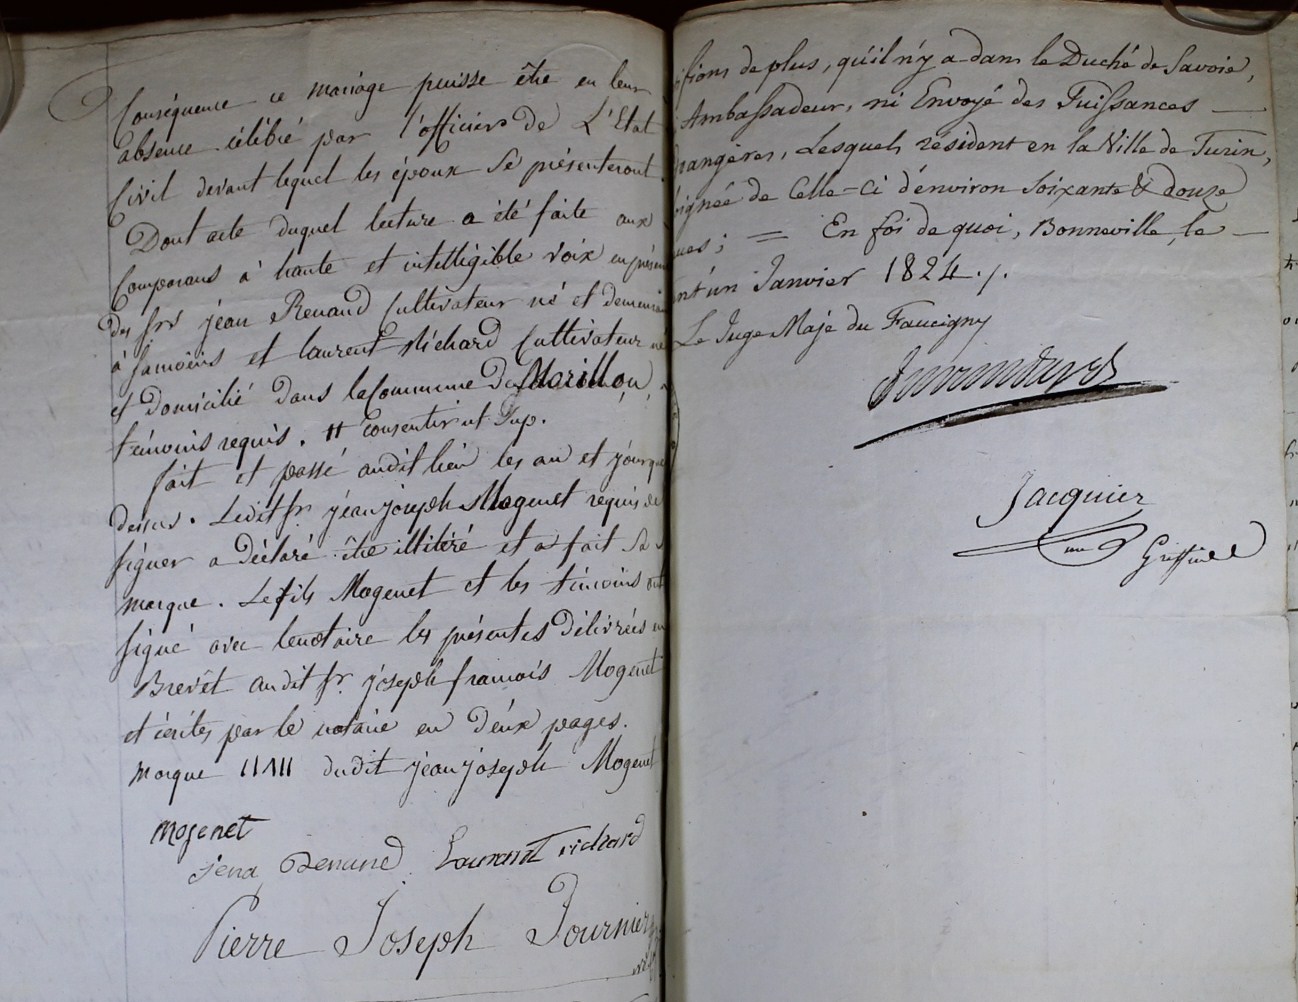 Conséquence ce mariage puisse être en leur
absence célébré par l'officier de L'Etat
Civil devant lequel les époux se présenteront.
Dont acte duquel lecture a été faite aux
Comparans à haute et intelligible voix en présen
des srs jean Renand Cultivateur né et demeuran
à samoëns et laurent Richard Cultivateur né
et domicilié dans la Commune De Morillon,
témoins requis. # consentir et sup.
fait et passé audit lieu les an et jour que
dessus. Ledit sr jean joseph Mogenet requis de
signer a Déclaré être illitéré et a fait sa
marque. Le fils Mogenet et les témoins ont
signé avec le notaire les présentes Délivrées en
Brevèt audit sr. joseph francois Mogenet
et écrites par le notaire en deux pages.
marque dudit jean joseph Mogenet
mogenet
jena Renand Laurant richard
Pierre Joseph Fournier
ifions de plus, qu'il n'y a dans le Duché de Savoie,
Ambassadeur, ni Envoyé des Puissances
trangères, Lesquels résident en la Ville de Turin,
oignée de Celle-Ci d'environ Soixante & douze
ues; = En foi de quoi, Bonneville, le
nt'un Janvier 1824./.
Le Juge Maje du Faucigny
Jacquier
Greffier